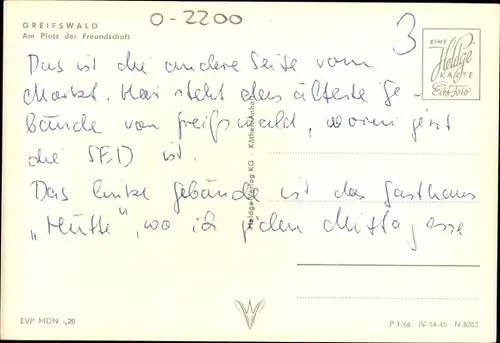 GREIFSWALD
Am Platz der Freundschaft
O-2200
3
EINE
Heldge
KARTE
Echt-Foto
Das ist die andere Seite vom
Markt. Hier steht das älteste Ge-
bäude von Greifswald, worin jetzt
die SED ist.
Das linke Gebäude ist das Gasthaus
„Hütte“, wo ich jeden Mittag esse
Heldge-Verlag KG Köthen/Anhalt
EVP MDN -,20
P 1/66 IV-14-45 N 8203